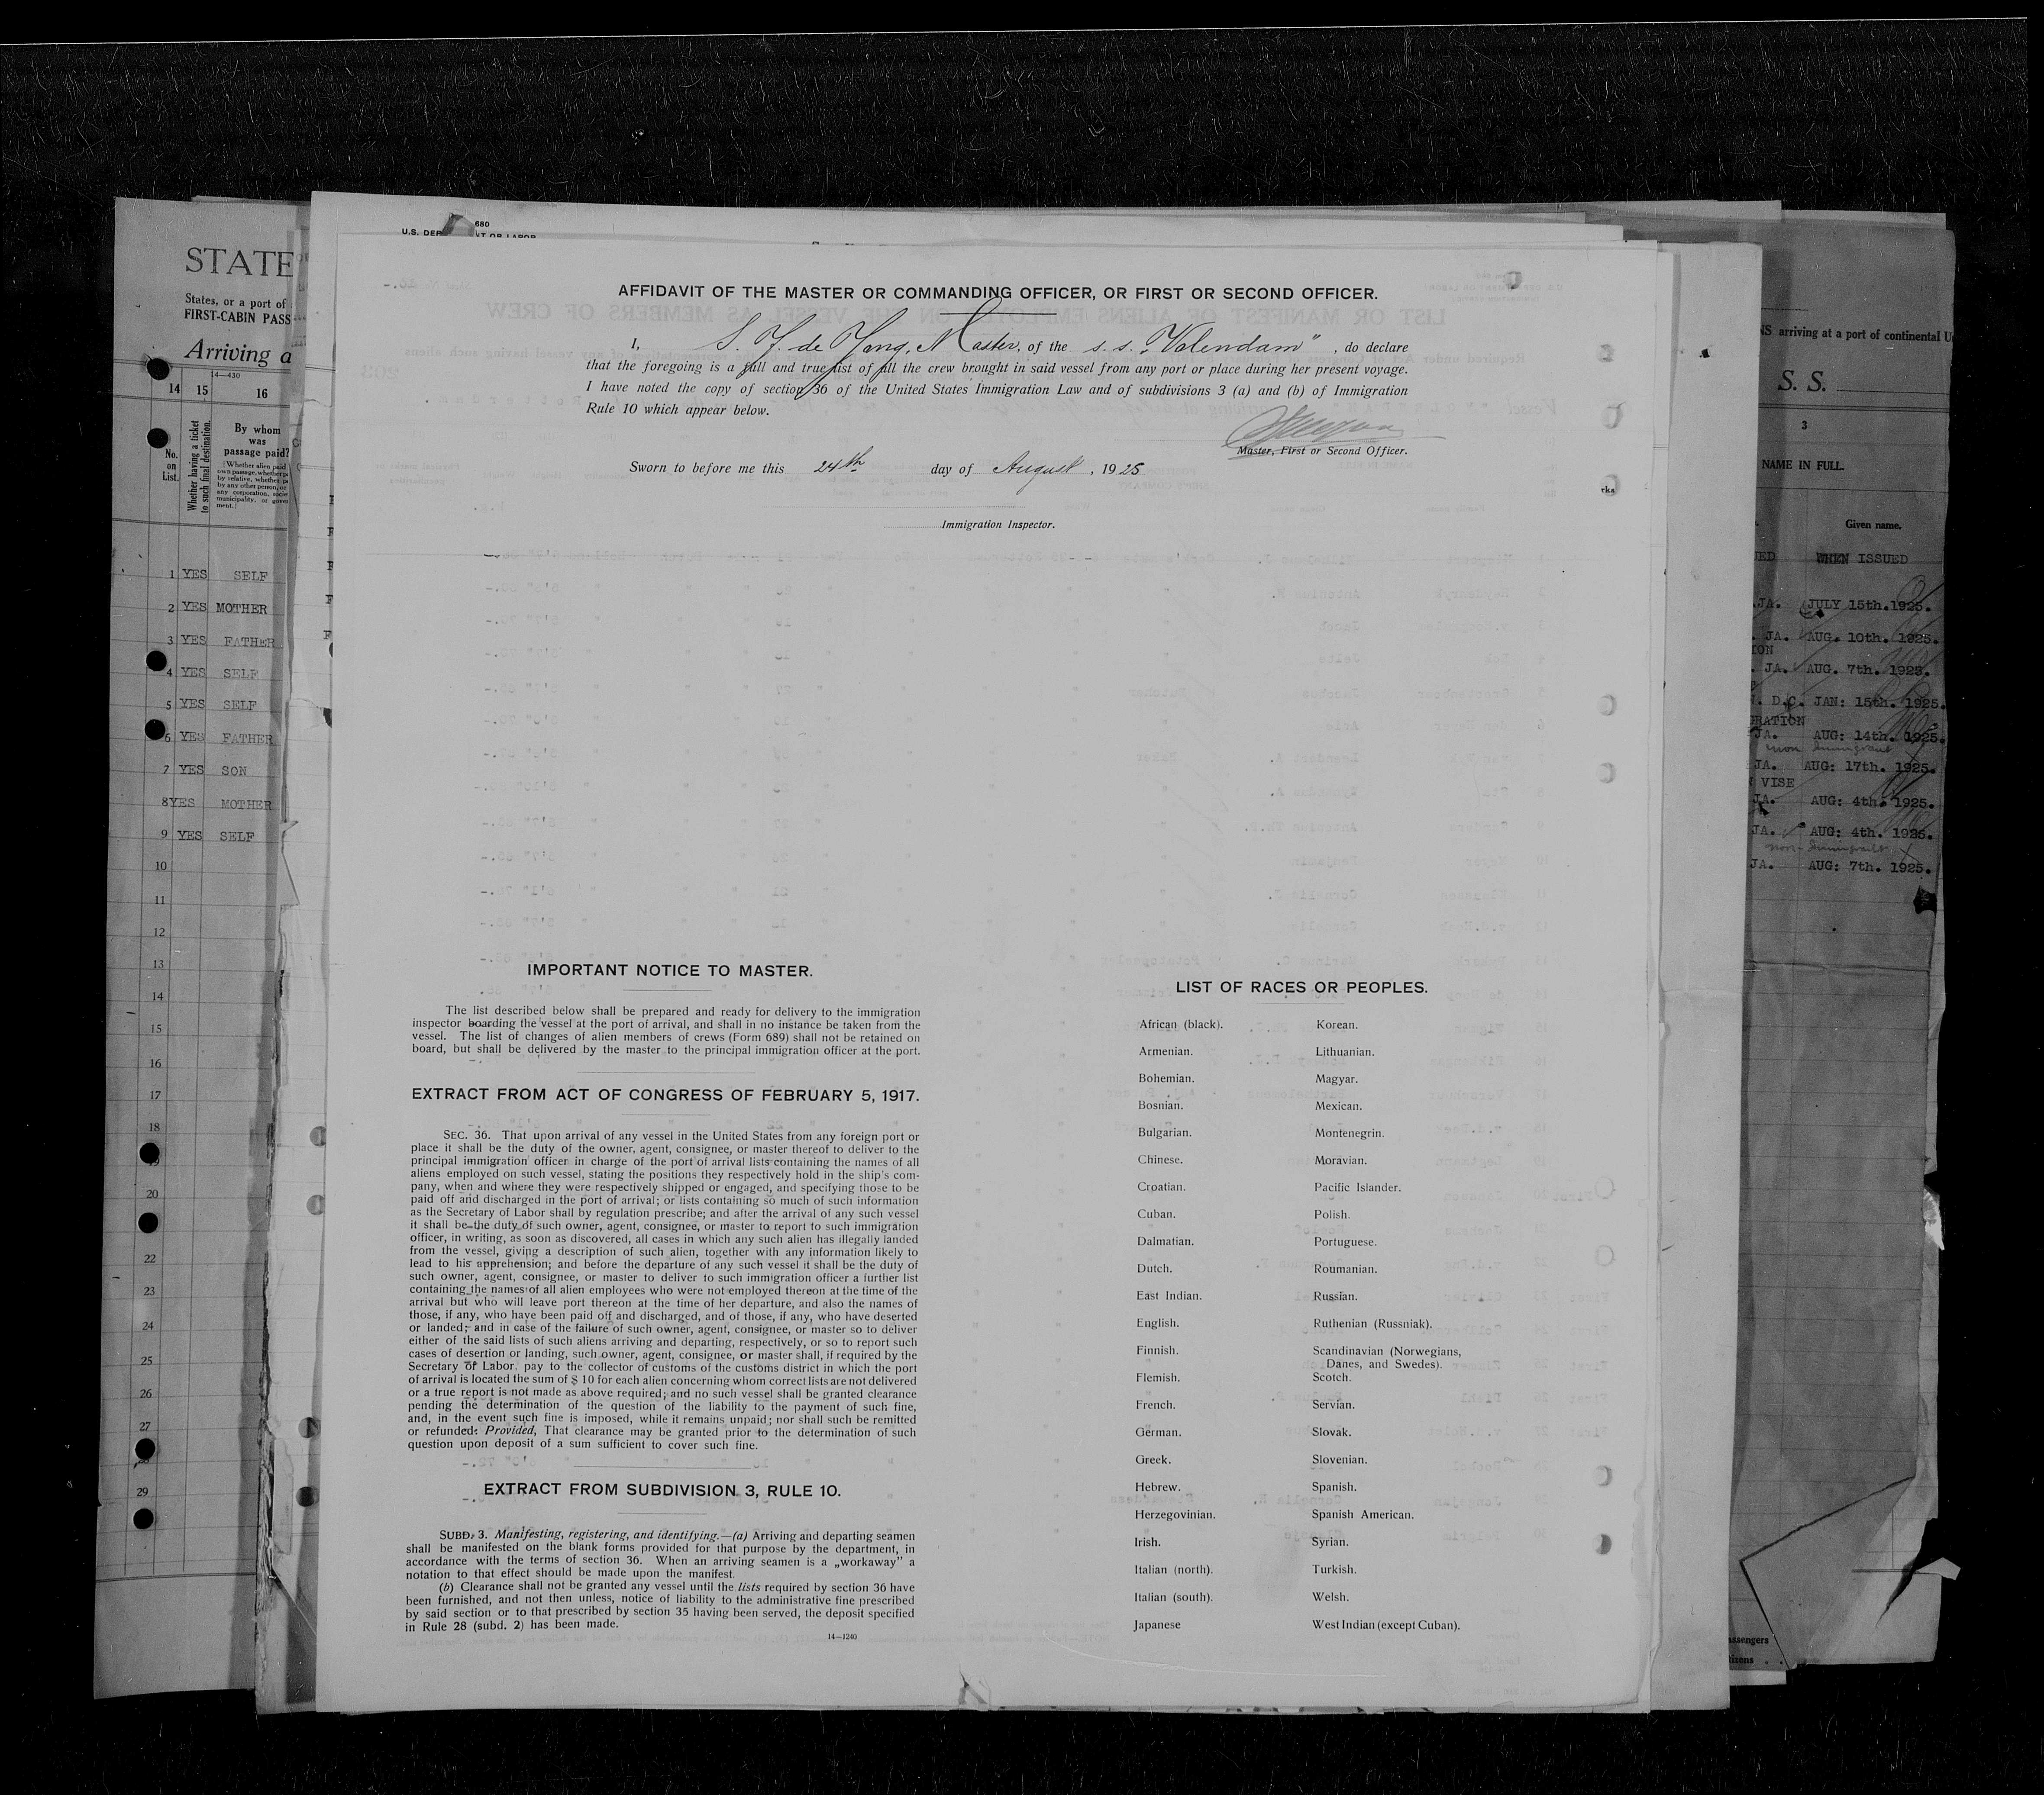 680
U.S. DEP
STATE
States, or a port of
FIRST-CABIN PASS
Arriving a
14—430
14 15 16
No. on List.
Whether having a ticket to such final destination.
By whom was passage paid?
1 YES SELF
2 YES MOTHER
3 YES FATHER
4 YES SELF
5 YES SELF
6 YES FATHER
7 YES SON
8 YES MOTHER
9 YES SELF
10
11
12
13
14
15
16
17
18
20
22
23
24
25
26
27
29
AFFIDAVIT OF THE MASTER OR COMMANDING OFFICER, OR FIRST OR SECOND OFFICER.
I, S. J. de Jong, Master, of the s.s. „Volendam", do declare
that the foregoing is a full and true list of all the crew brought in said vessel from any port or place during her present voyage.
I have noted the copy of section 36 of the United States Immigration Law and of subdivisions 3 (a) and (b) of Immigration
Rule 10 which appear below.
Master, First or Second Officer.
Sworn to before me this 24th day of August, 1925
Immigration Inspector.
IMPORTANT NOTICE TO MASTER.
The list described below shall be prepared and ready for delivery to the immigration
inspector boarding the vessel at the port of arrival, and shall in no instance be taken from the
vessel. The list of changes of alien members of crews (Form 689) shall not be retained on
board, but shall be delivered by the master to the principal immigration officer at the port.
EXTRACT FROM ACT OF CONGRESS OF FEBRUARY 5, 1917.
SEC. 36. That upon arrival of any vessel in the United States from any foreign port or
place it shall be the duty of the owner, agent, consignee, or master thereof to deliver to the
principal immigration officer in charge of the port of arrival lists containing the names of all
aliens employed on such vessel, stating the positions they respectively hold in the ship's com-
pany, when and where they were respectively shipped or engaged, and specifying those to be
paid off and discharged in the port of arrival; or lists containing so much of such information
as the Secretary of Labor shall by regulation prescribe; and after the arrival of any such vessel
it shall be the duty of such owner, agent, consignee, or master to report to such immigration
officer, in writing, as soon as discovered, all cases in which any such alien has illegally landed
from the vessel, giving a description of such alien, together with any information likely to
lead to his apprehension; and before the departure of any such vessel it shall be the duty of
such owner, agent, consignee, or master to deliver to such immigration officer a further list
containing the names of all alien employees who were not employed thereon at the time of the
arrival but who will leave port thereon at the time of her departure, and also the names of
those, if any, who have been paid off and discharged, and of those, if any, who have deserted
or landed; and in case of the failure of such owner, agent, consignee, or master so to deliver
either of the said lists of such aliens arriving and departing, respectively, or so to report such
cases of desertion or landing, such owner, agent, consignee, or master shall, if required by the
Secretary of Labor, pay to the collector of customs of the customs district in which the port
of arrival is located the sum of $ 10 for each alien concerning whom correct lists are not delivered
or a true report is not made as above required; and no such vessel shall be granted clearance
pending the determination of the question of the liability to the payment of such fine,
and, in the event such fine is imposed, while it remains unpaid; nor shall such be remitted
or refunded: Provided, That clearance may be granted prior to the determination of such
question upon deposit of a sum sufficient to cover such fine.
EXTRACT FROM SUBDIVISION 3, RULE 10.
SUBD. 3. Manifesting, registering, and identifying.—(a) Arriving and departing seamen
shall be manifested on the blank forms provided for that purpose by the department, in
accordance with the terms of section 36. When an arriving seamen is a „workaway" a
notation to that effect should be made upon the manifest.
(b) Clearance shall not be granted any vessel until the lists required by section 36 have
been furnished, and not then unless, notice of liability to the administrative fine prescribed
by said section or to that prescribed by section 35 having been served, the deposit specified
in Rule 28 (subd. 2) has been made.
14—1240
LIST OF RACES OR PEOPLES.
African (black). Korean.
Armenian. Lithuanian.
Bohemian. Magyar.
Bosnian. Mexican.
Bulgarian. Montenegrin.
Chinese. Moravian.
Croatian. Pacific Islander.
Cuban. Polish.
Dalmatian. Portuguese.
Dutch. Roumanian.
East Indian. Russian.
English. Ruthenian (Russniak).
Finnish. Scandinavian (Norwegians,
Danes, and Swedes).
Flemish. Scotch.
French. Servian.
German. Slovak.
Greek. Slovenian.
Hebrew. Spanish.
Herzegovinian. Spanish American.
Irish. Syrian.
Italian (north). Turkish.
Italian (south). Welsh.
Japanese West Indian (except Cuban).
NS arriving at a port of continental U
S. S.
3
NAME IN FULL.
Given name.
WHEN ISSUED
JA. JULY 15th. 1925.
JA. AUG. 10th. 1925.
JA. AUG. 7th. 1925.
D.C. JAN: 15th. 1925.
JA. AUG: 14th. 1925.
non immigrant
JA. AUG: 17th. 1925.
VISE
JA. AUG: 4th. 1925.
JA. AUG: 4th. 1925.
non-immigrant
JA. AUG: 7th. 1925.